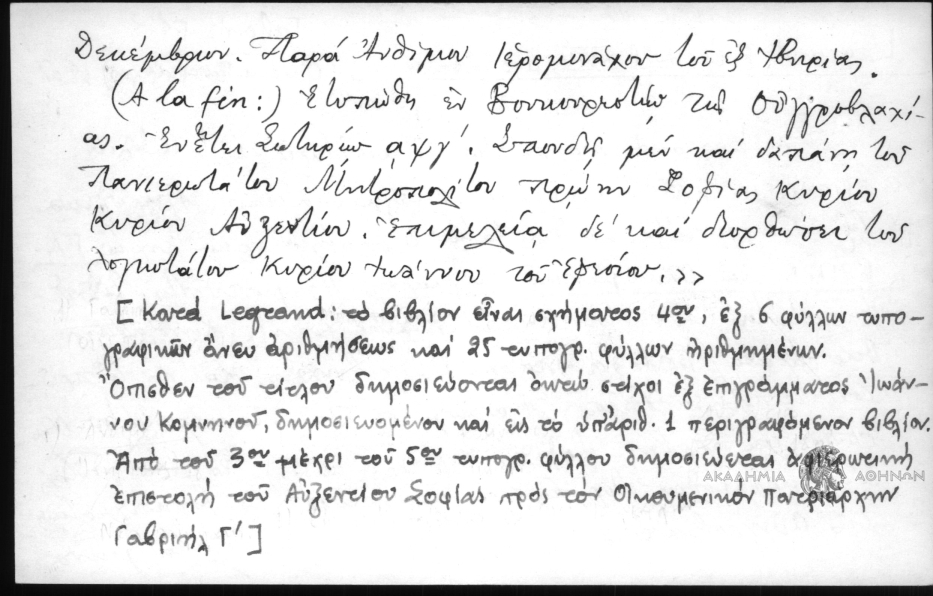 Δεκέμβριον. Παρά Ἀνθίμου Ἱερομονάχου τοῦ ἐξ Ἰβηρίας.
(A la fin:) Ἐτυπώθη ἐν Βουκουρεστίῳ τῆς Οὐγγροβλαχί-
ας. Ἐν ἔτει Σωτηρίῳ αψγ΄. Σπουδῇ μέν καί δαπάνῃ τοῦ
Πανιερωτάτου Μητροπολίτου πρώην Σοφίας Κυρίου
Κυρίου Αὐξεντίου. Ἐπιμελείᾳ δέ καί διορθώσει τοῦ
λογιωτάτου Κυρίου Ἰωάννου τοῦ Ἐφεσίου.>>
[Κατά Legrand: τό βιβλίον εἶναι σχήματος 4ου, ἐξ 6 φύλλων τυπο-
γραφικῶν ἄνευ ἀριθμήσεως καί 25 τυπογρ. φύλλων ἠριθμημένων.
Ὄπισθεν τοῦ τίτλου δημοσιεύονται ὀκτώ στίχοι ἐξ ἐπιγράμματος Ἰωάν-
νου Κομνηνοῦ, δημοσιευομένου καί εἰς τό ὑπ' ἀριθ. 1 περιγραφόμενον βιβλίον.
Ἀπό τοῦ 3ου μέχρι τοῦ 5ου τυπογρ. φύλλου δημοσιεύεται ἀφιερωτική
ΑΚΑΔΗΜΙΑ ΑΘΗΝΩΝ
ἐπιστολή τοῦ Αὐξεντίου Σοφίας πρός τόν Οἰκουμενικόν Πατριάρχην
Γαβριήλ Γ΄]